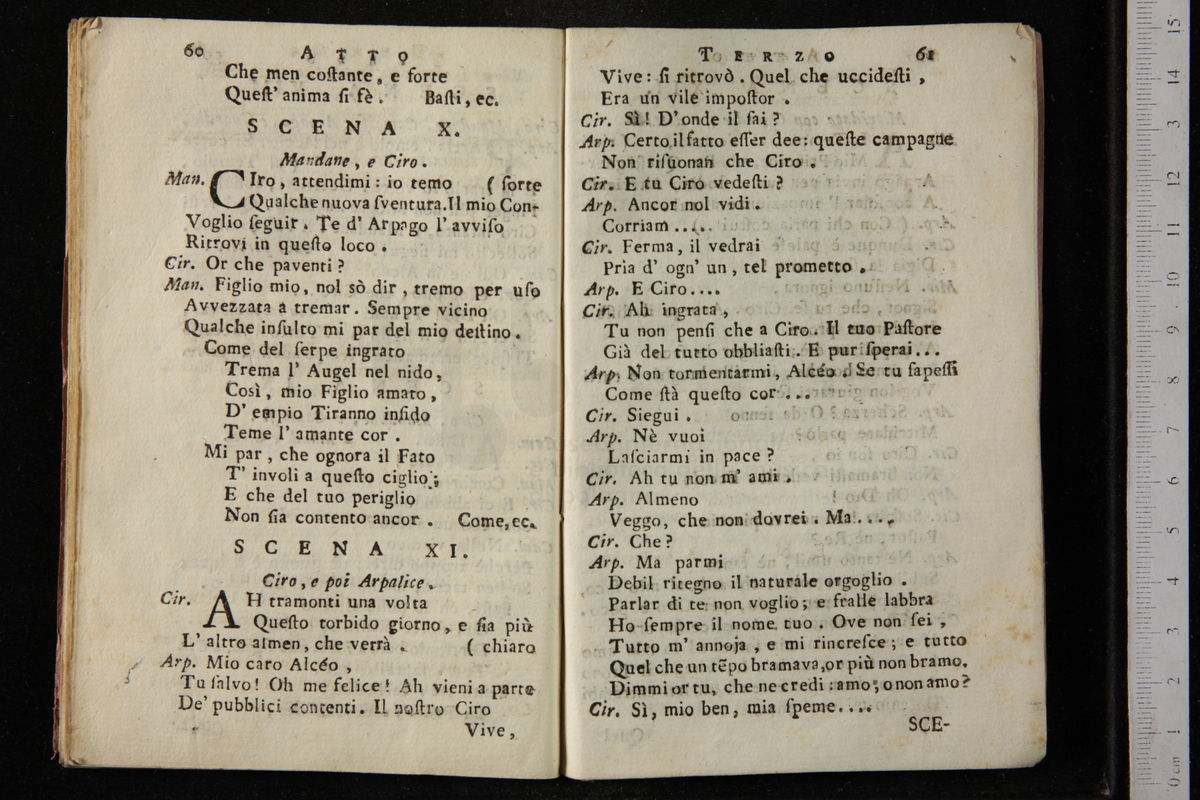 60 ATTO
Che men coſtante, e forte
Queſt' anima ſi fè. Baſti, ec.
SCENA X.
Mandane, e Ciro.
Man. CIro, attendimi: io temo ( ſorte
Qualche nuova ſventura. Il mio Con-
Voglio ſeguir. Te d' Arpago l' avviſo
Ritrovi in queſto loco.
Cir. Or che paventi?
Man. Figlio mio, nol sò dir, tremo per uſo
Avvezzata a tremar. Sempre vicino
Qualche inſulto mi par del mio deſtino.
Come del ſerpe ingrato
Trema l' Augel nel nido,
Così, mio Figlio amato,
D' empio Tiranno inſido
Teme l' amante cor.
Mi par, che ognora il Fato
T' involi a queſto ciglio;
E che del tuo periglio
Non ſia contento ancor. Come, ec.
SCENA XI.
Ciro, e poi Arpalice.
Cir. AH tramonti una volta
Queſto torbido giorno, e ſia più
L' altro almen, che verrà. ( chiaro
Arp. Mio caro Alcéo,
Tu ſalvo! Oh me felice! Ah vieni a parte
De' pubblici contenti. Il noſtro Ciro
Vive,
TERZO 61
Vive: ſi ritrovò. Quel che uccideſti,
Era un vile impoſtor.
Cir. Sì! D'onde il ſai?
Arp. Certo il fatto eſſer dee: queſte campagne
Non riſuonan che Ciro.
Cir. E tu Ciro vedeſti?
Arp. Ancor nol vidi.
Corriam .....
Cir. Ferma, il vedrai
Pria d' ogn' un, tel prometto.
Arp. E Ciro....
Cir. Ah ingrata,
Tu non penſi che a Ciro. Il tuo Paſtore
Già del tutto obbliaſti. E pur ſperai...
Arp. Non tormentarmi, Alcéo. Se tu ſapeſſi
Come ſtà queſto cor ...
Cir. Siegui.
Arp. Nè vuoi
Laſciarmi in pace?
Cir. Ah tu non m' ami.
Arp. Almeno
Veggo, che non dovrei. Ma....
Cir. Che?
Arp. Ma parmi
Debil ritegno il naturale orgoglio.
Parlar di te non voglio; e fralle labbra
Ho ſempre il nome tuo. Ove non ſei,
Tutto m' annoja, e mi rincreſce; e tutto
Quel che un tẽpo bramava, or più non bramo.
Dimmi or tu, che ne credi: amo, o non amo?
Cir. Sì, mio ben, mia ſpeme....
SCE-
15
14
13
12
11
10
9
8
7
6
5
4
3
2
1
0 cm